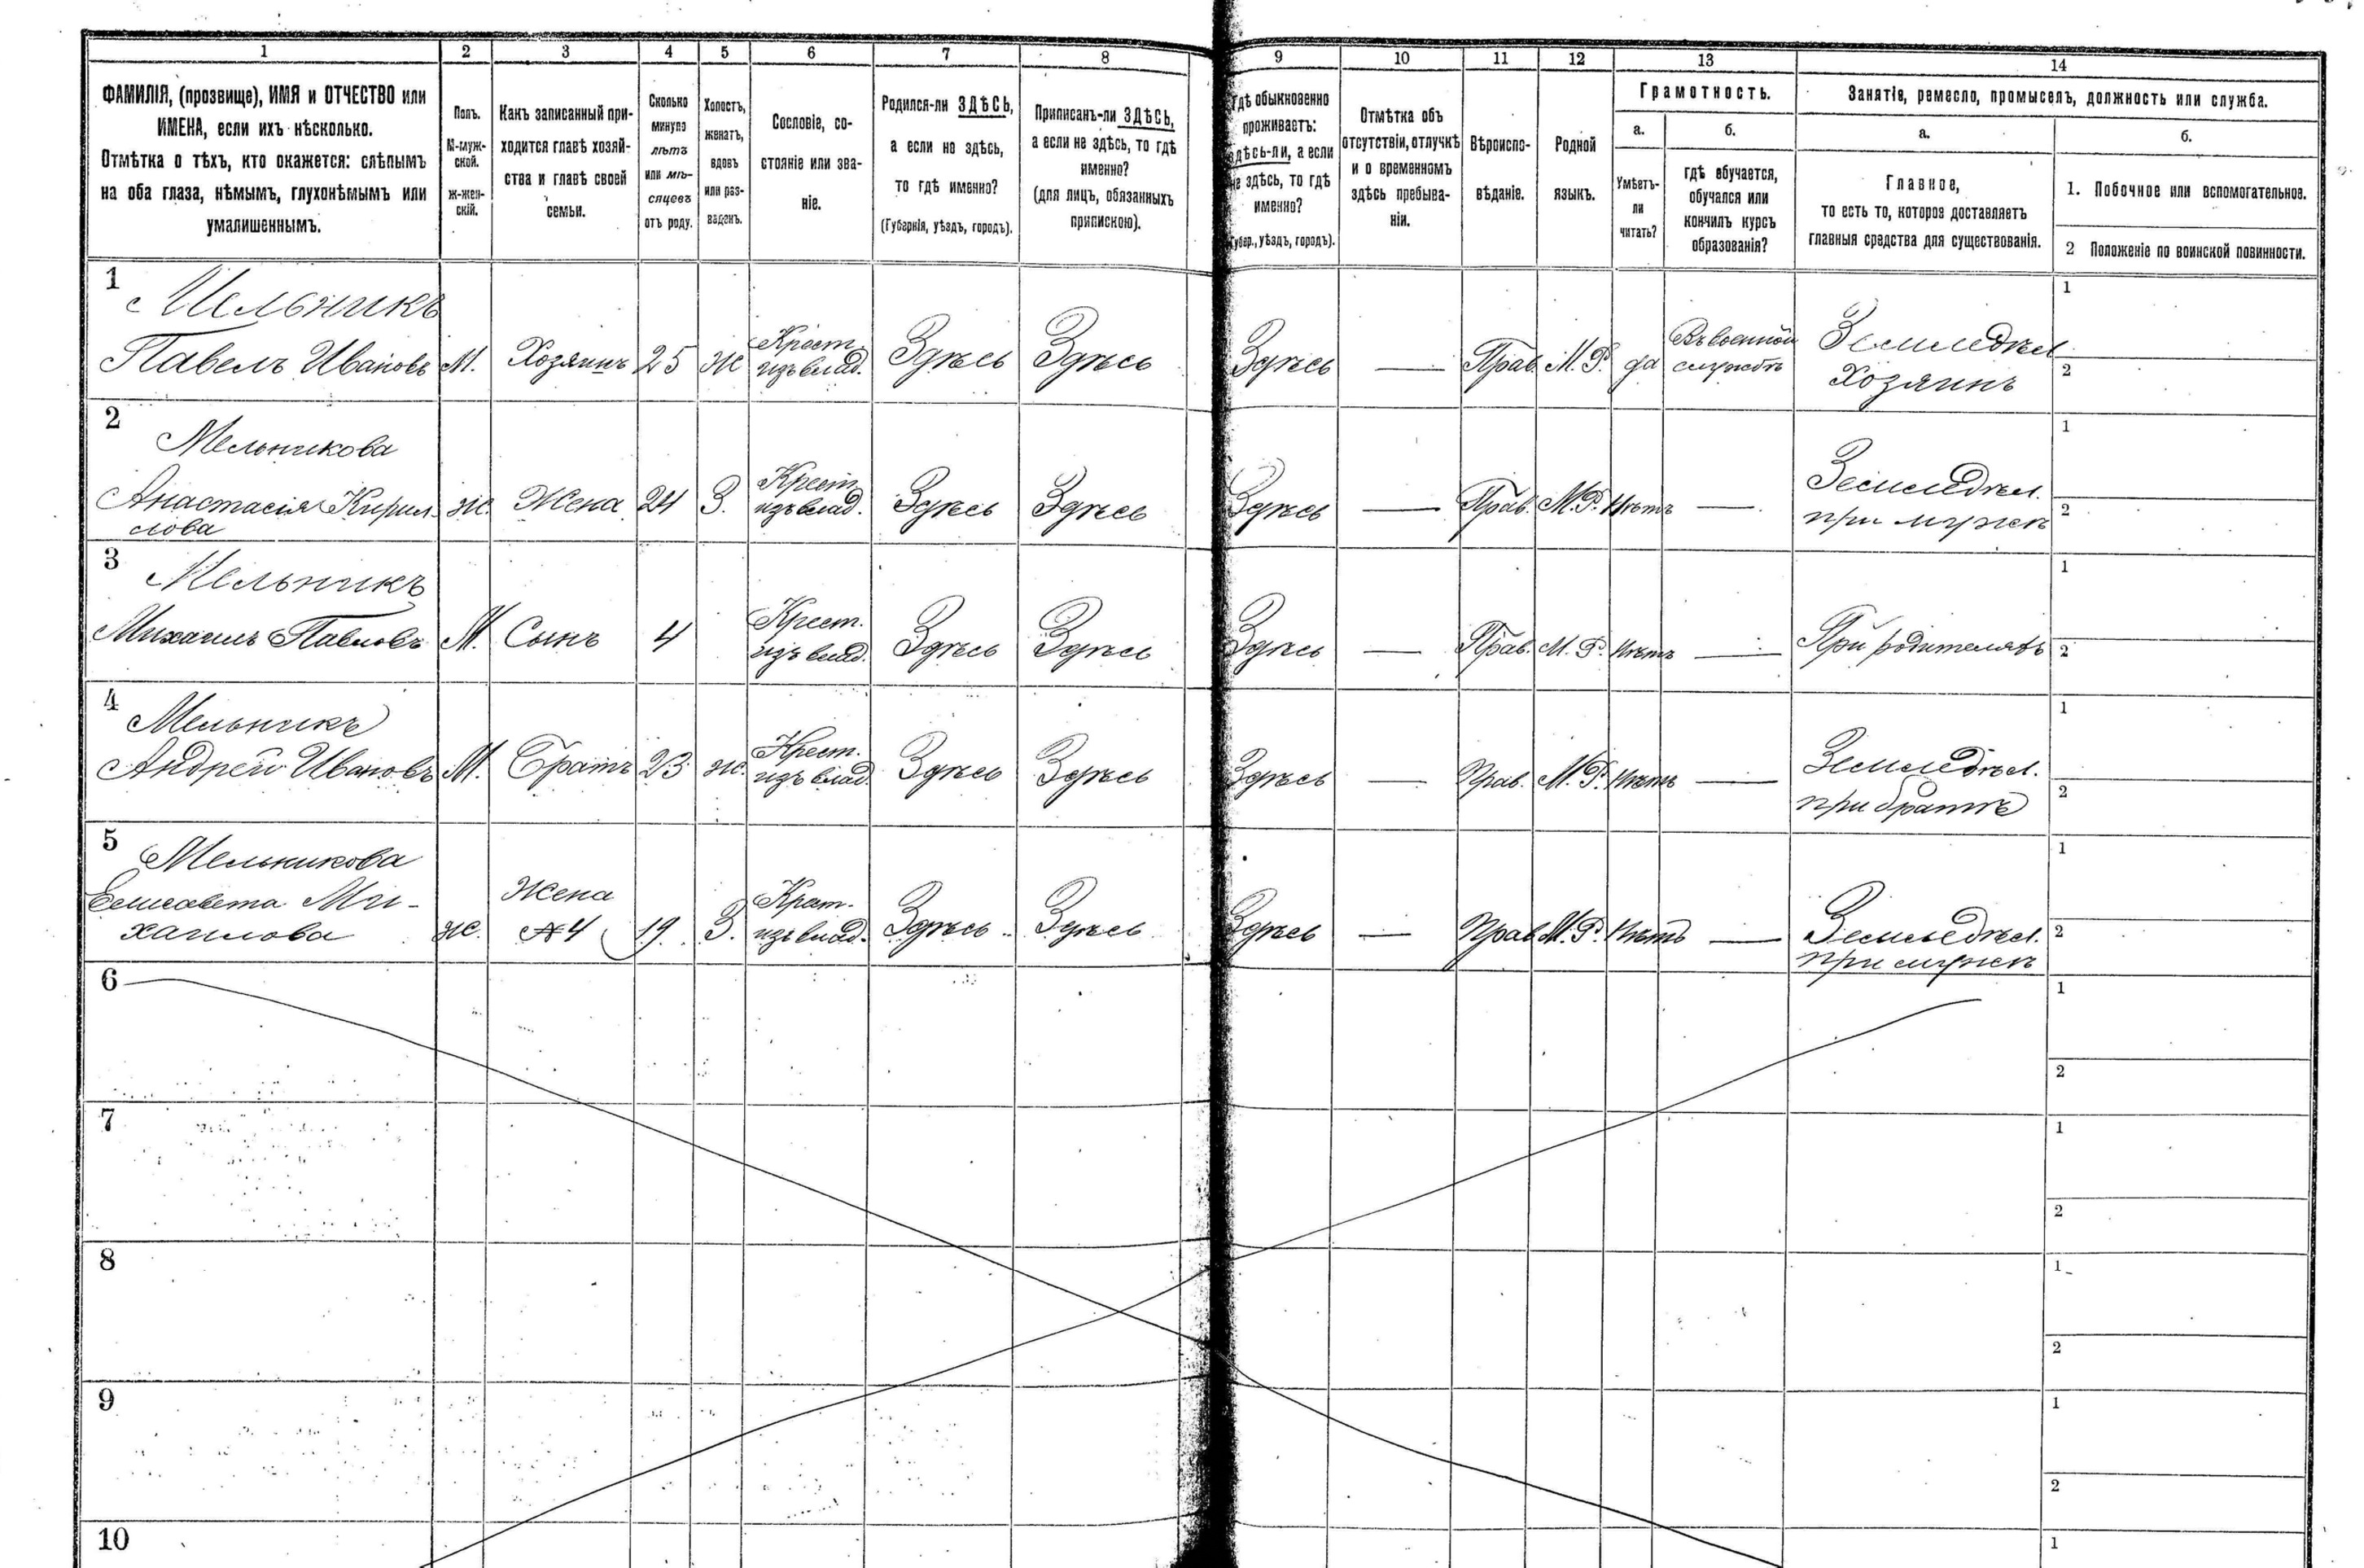 1 2 3 4 5 6 7 8 9 10 11 12 13 14
ФАМИЛІЯ, (прозвище), ИМЯ и ОТЧЕСТВО или
ИМЕНА, если ихъ нѣсколько.
Отмѣтка о тѣхъ, кто окажется: слѣпымъ
на оба глаза, нѣмымъ, глухонѣмымъ или
умалишеннымъ.
Полъ.
М-муж-
ской.
ж-жен-
скій.
Какъ записанный при-
ходится главѣ хозяй-
ства и главѣ своей
семьи.
Сколько
минуло
лѣтъ
или мѣ-
сяцевъ
отъ роду.
Холостъ,
женатъ,
вдовъ
или раз-
веденъ.
Сословіе, со-
стояніе или зва-
ніе.
Родился-ли ЗДѢСЬ,
а если не здѣсь,
то гдѣ именно?
(Губернія, уѣздъ, городъ).
Приписанъ-ли ЗДѢСЬ,
а если не здѣсь, то гдѣ
именно?
(для лицъ, обязанныхъ
припискою).
Гдѣ обыкновенно
проживаетъ:
здѣсь-ли, а если
не здѣсь, то гдѣ
именно?
(Губер., уѣздъ, городъ).
Отмѣтка объ
отсутствіи, отлучкѣ
и о временномъ
здѣсь пребыва-
ніи.
Вѣроиспо-
вѣданіе.
Родной
языкъ.
Грамотность.
а.
Умѣетъ-
ли
читать?
б.
гдѣ обучается,
обучался или
кончилъ курсъ
образованія?
Занятіе, ремесло, промыселъ, должность или служба.
а.
Главное,
то есть то, которое доставляетъ
главныя средства для существованія.
б.
1. Побочное или вспомогательное.
2 Положеніе по воинской повинности.
1
Мельникъ
Павелъ Ивановъ
М.
Хозяинъ
25
ж
Крест.
изъ влад.
Здѣсь
Здѣсь
Здѣсь
—
Прав.
М. Р.
да
Въ военной
службѣ
Земледѣл
Хозяинъ
1
2
2
Мельникова
Анастасія Кирил
лова
ж.
Жена
24
З.
Крест.
изъ влад.
Здѣсь
Здѣсь
Здѣсь
—
Прав.
М. Р.
Нѣтъ
—
Земледѣл.
при мужѣ
1
2
3
Мельникъ
Михаилъ Павловъ
М.
Сынъ
4
Крест.
изъ влад.
Здѣсь
Здѣсь
Здѣсь
—
Прав.
М. Р.
Нѣтъ
—
При родителяхъ
1
2
4
Мельникъ
Андрей Ивановъ
М.
Братъ
23
ж.
Крест.
изъ влад.
Здѣсь
Здѣсь
Здѣсь
—
Прав.
М. Р.
Нѣтъ
—
Земледѣл.
при братѣ
1
2
5
Мельникова
Елисавета Ми-
хаилова
ж.
Жена
№ 4
19
З.
Крест.
изъ влад.
Здѣсь
Здѣсь
Здѣсь
—
Прав.
М. Р.
Нѣтъ
—
Земледѣл.
при мужѣ
1
2
6
1
2
7
1
2
8
1
2
9
1
2
10
1